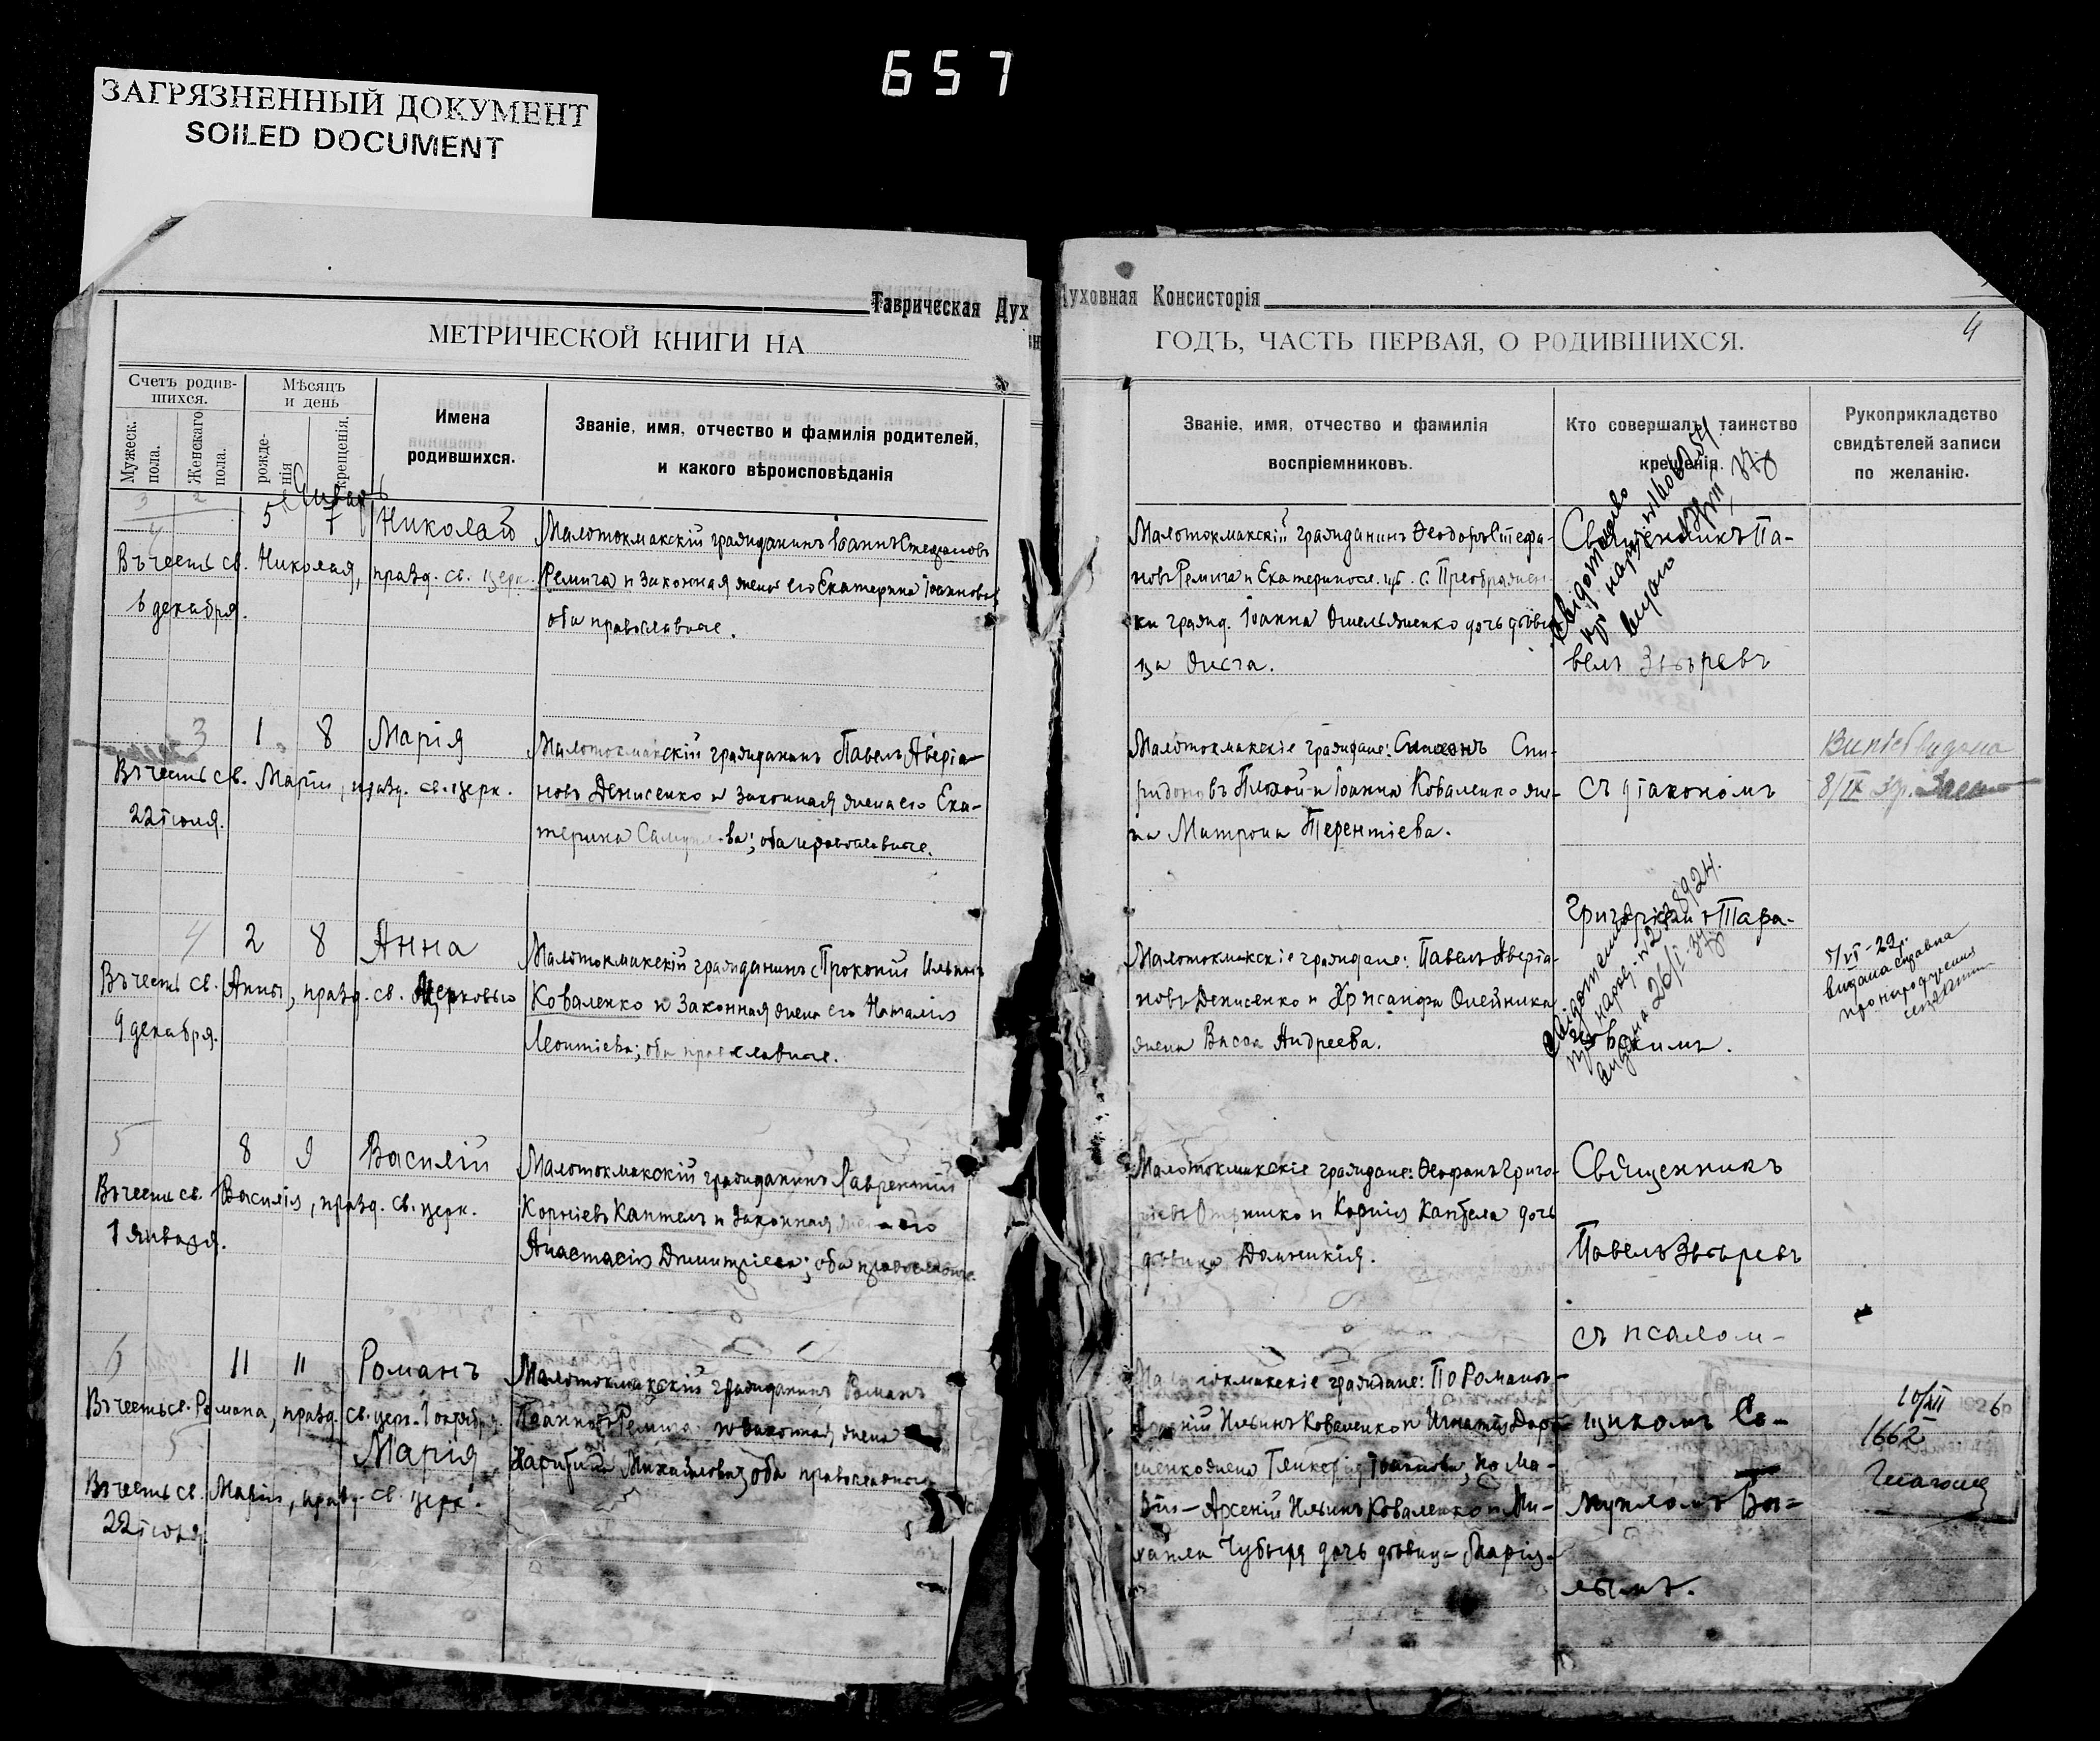 657
ЗАГРЯЗНЕННЫЙ ДОКУМЕНТ
SOILED DOCUMENT
Таврическая Дух
Духовная Консисторія
МЕТРИЧЕСКОЙ КНИГИ НА
ГОДЪ, ЧАСТЬ ПЕРВАЯ, О РОДИВШИХСЯ.
4
Счетъ родив-
шихся.
Мужеск.
пола.
Женскаго
пола.
Мѣсяцъ
и день
рожде-
нія
крещенія.
Имена
родившихся.
Званіе, имя, отчество и фамилія родителей,
и какого вѣроисповѣданія
Званіе, имя, отчество и фамилія
воспріемниковъ.
Кто совершалъ таинство
крещенія.
Рукоприкладство
свидѣтелей записи
по желанію.
3 2
5 7 Николай
Въ честь св. Николая, празд. св. церк.
6 декабря.
Малотокмакскій гражданинъ Іоаннъ Стефановъ
Ремига и законная жена его Екатерина Іоаннова
оба православные.
Малотокмакскій гражданинъ Ѳеодоръ Стефа-
новъ Ремига и Екатеринося. губ. с. Преображен-
ки гражд. Іоанна дочь дѣви-
ца
Священникъ Па-
велъ Звѣревъ
3 1 8 Марія
Въ честь св. Маріи, празд. св. церк.
22 іюля.
Малотокмакскій гражданинъ Павелъ Аверіа-
новъ Денисенко и законная жена его Ека-
терина оба православные.
Малотокмакскіе граждане: Симеонъ Спи-
ридоновъ Плохой и Іоанна Коваленко же-
на Матрона Терентіева.
съ діакономъ
8/IX
4 2 8 Анна
Въ честь св. Анны, празд. св. Церковью
9 декабря.
Малотокмакскій гражданинъ Прокопій Ильинъ
Коваленко и законная жена его Наталія
Леонтіева; оба православные.
Малотокмакскіе граждане: Павелъ Аверіа-
новъ Денисенко и Хрисанфа Олейника
жена Васса Андреева.
Григоріемъ Тара-
5/VI-22р.
видана справка
про народження
5 8 9 Василій
Въ честь св. Василія, празд. св. церк.
1 января.
Малотокмакскій гражданинъ Лаврентій
Корніевъ Каптелъ и законная жена его
Анастасія Димитріева; оба православные.
Малотокмакскіе граждане: Ѳеофанъ Григо-
и Корнія Каптела дочь
дѣвица Домникія.
Священникъ
Павелъ Звѣревъ
съ псалом-
6 11 11 Романъ
Въ честь св. Романа, празд. св. церк. 1 октября.
Малотокмакскій гражданинъ Романъ
Іоанновъ Ремига и законная жена
5 Марія
Михайлова; оба православные
Въ честь св. Маріи, празд. св. церк.
22 іюля.
граждане: По Романѣ-
Арсеній Ильинъ Коваленко и Игнатія
жена Гликерія Іоаннова, по Ма-
ріи - Арсеній Ильинъ Коваленко и Ми-
хаила Чубыря дочь дѣвица Марія.
щикомъ Са-
10/XII 1926
1662